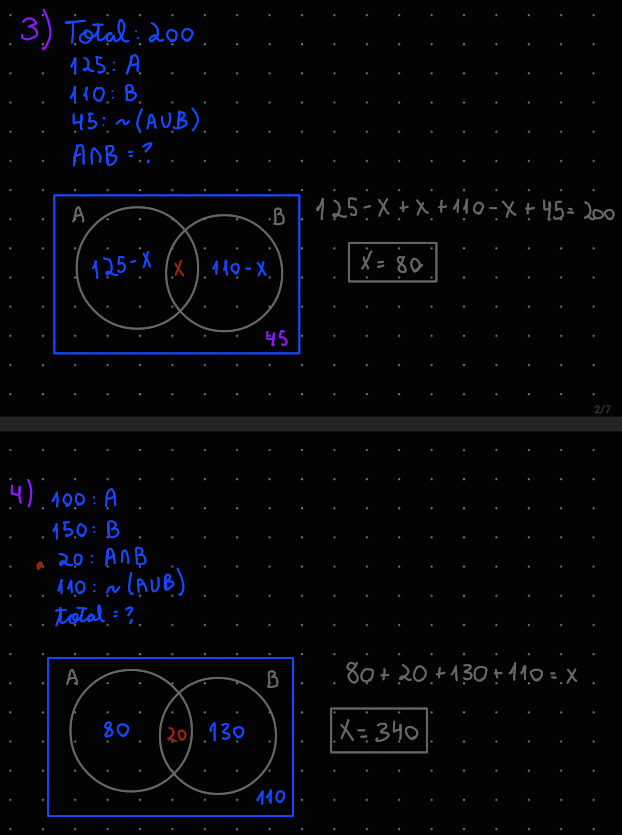 3) Total: 200
125: A
110: B
45: ~(A∪B)
A∩B = ?
A
B
125-x
x
110-x
45
125-x+x+110-x+45=200
x = 80
2/7
4) 100: A
150: B
20: A∩B
110: ~(A∪B)
total = ?
A
B
80
20
130
110
80+20+130+110=x
x=340